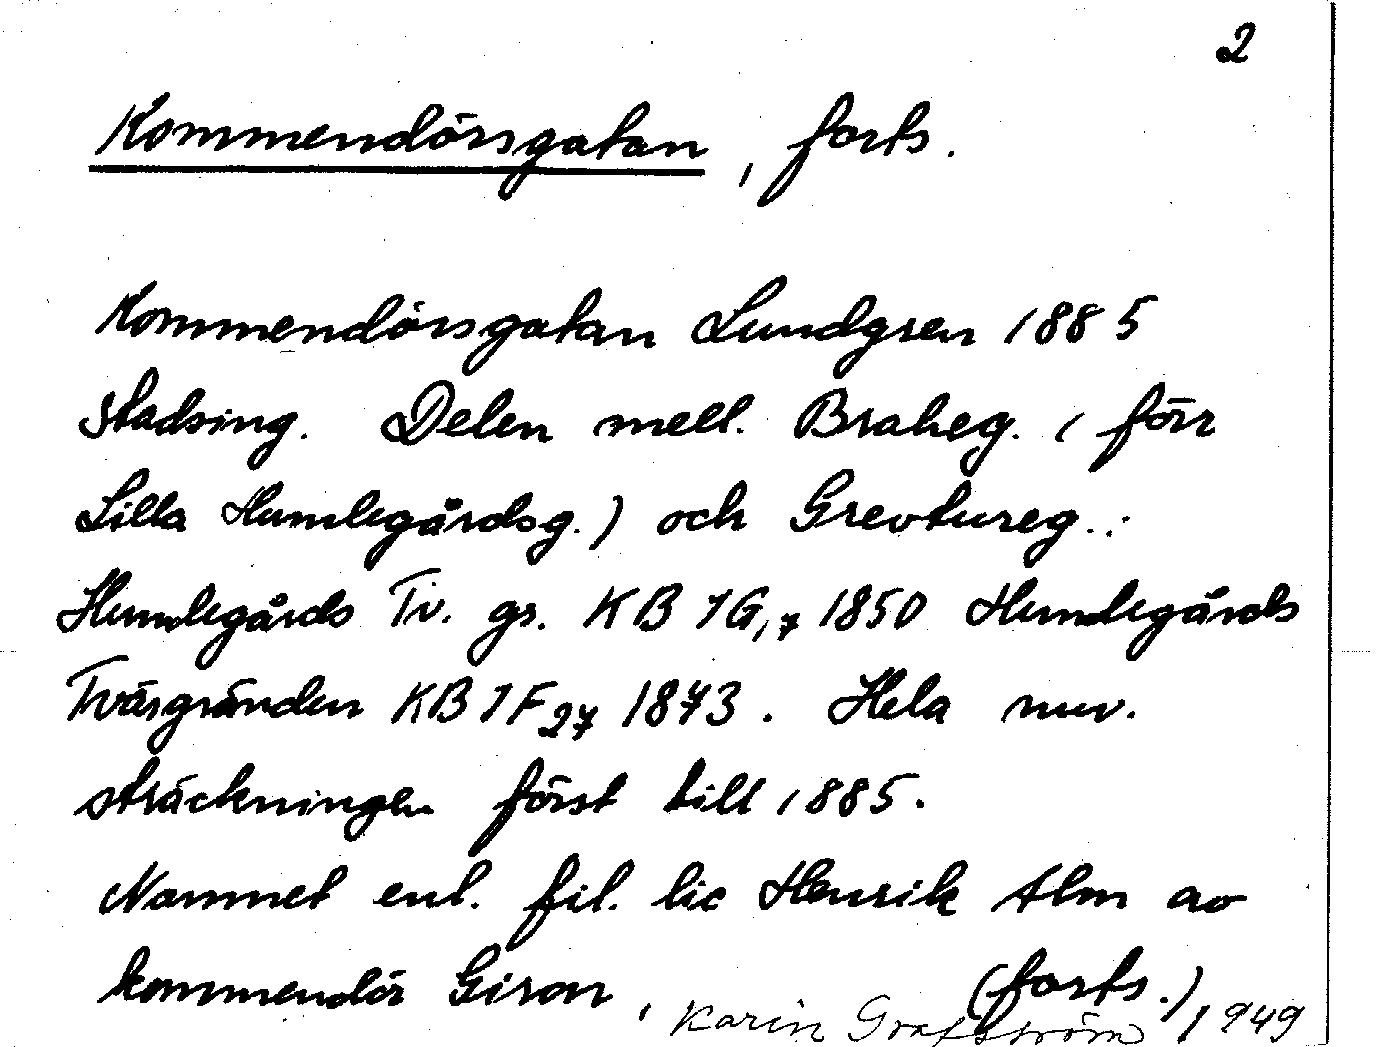 2
Kommendörsgatan, forts.
Kommendörsgatan Lundgren 1885
Stadsing. Delen mell. Braheg. (förr
Lilla Humlegårdsg.) och Grevtureg.:
Humlegårds Tv. gr. KB 1G,7 1850 Humlegårds
Tvärgränden KB 1F27 1873. Hela nuv.
sträckningen först till 1885.
Namnet enl. fil. lic Henrik Alm av
kommendör Giron, (forts.)
Karin Grafström 1949